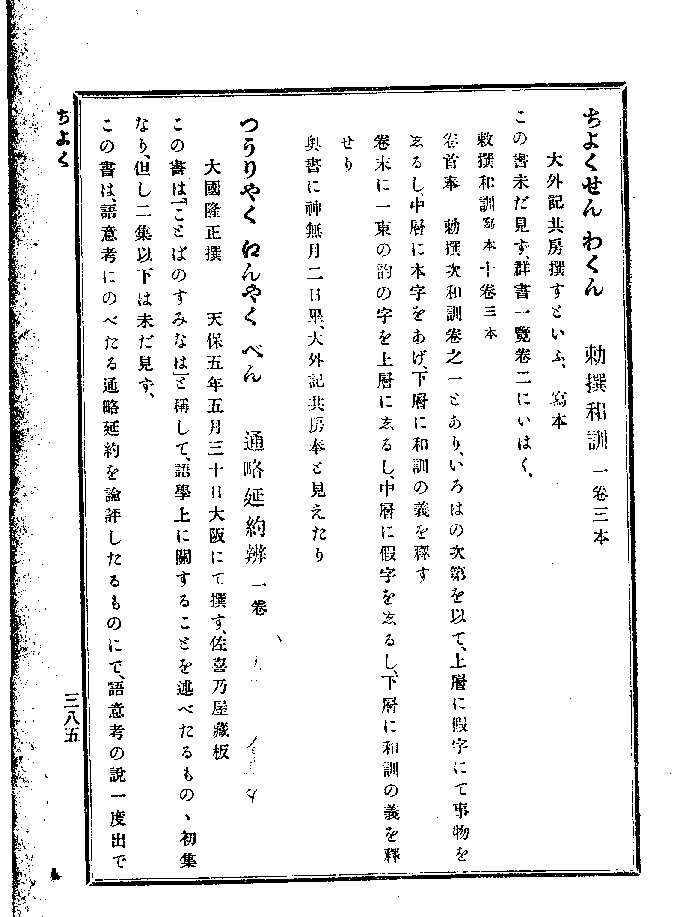 ちよくせん わくん　勅撰和訓 一卷三本
大外記共房撰すといふ、寫本
この書未だ見す、群書一覽卷二にいはく、
敕撰和訓 寫本 十卷三本
卷首奉　勅撰次和訓卷之一とあり、いろはの次第を以て、上層に假字にて事物を
志るし、中層に本字をあげ、下層に和訓の義を釋す
卷末に一東の韵の字を上層に志るし、中層に假字を志るし、下層に和訓の義を釋
せり
奥書に神無月二日畢、大外記共房奉と見えたり
つうりやく ねんやく べん　通略延約辨 一卷
大國隆正撰　天保五年五月三十日大阪にて撰す、佐喜乃屋藏板
この書は「ことばのすみなは」と稱して、語學上に關することを述べたるものゝ初集
なり、但し二集以下は未だ見す、
この書は、語意考にのべたる通略延約を論評したるものにて、語意考の說一度出で
ちよく
三八五